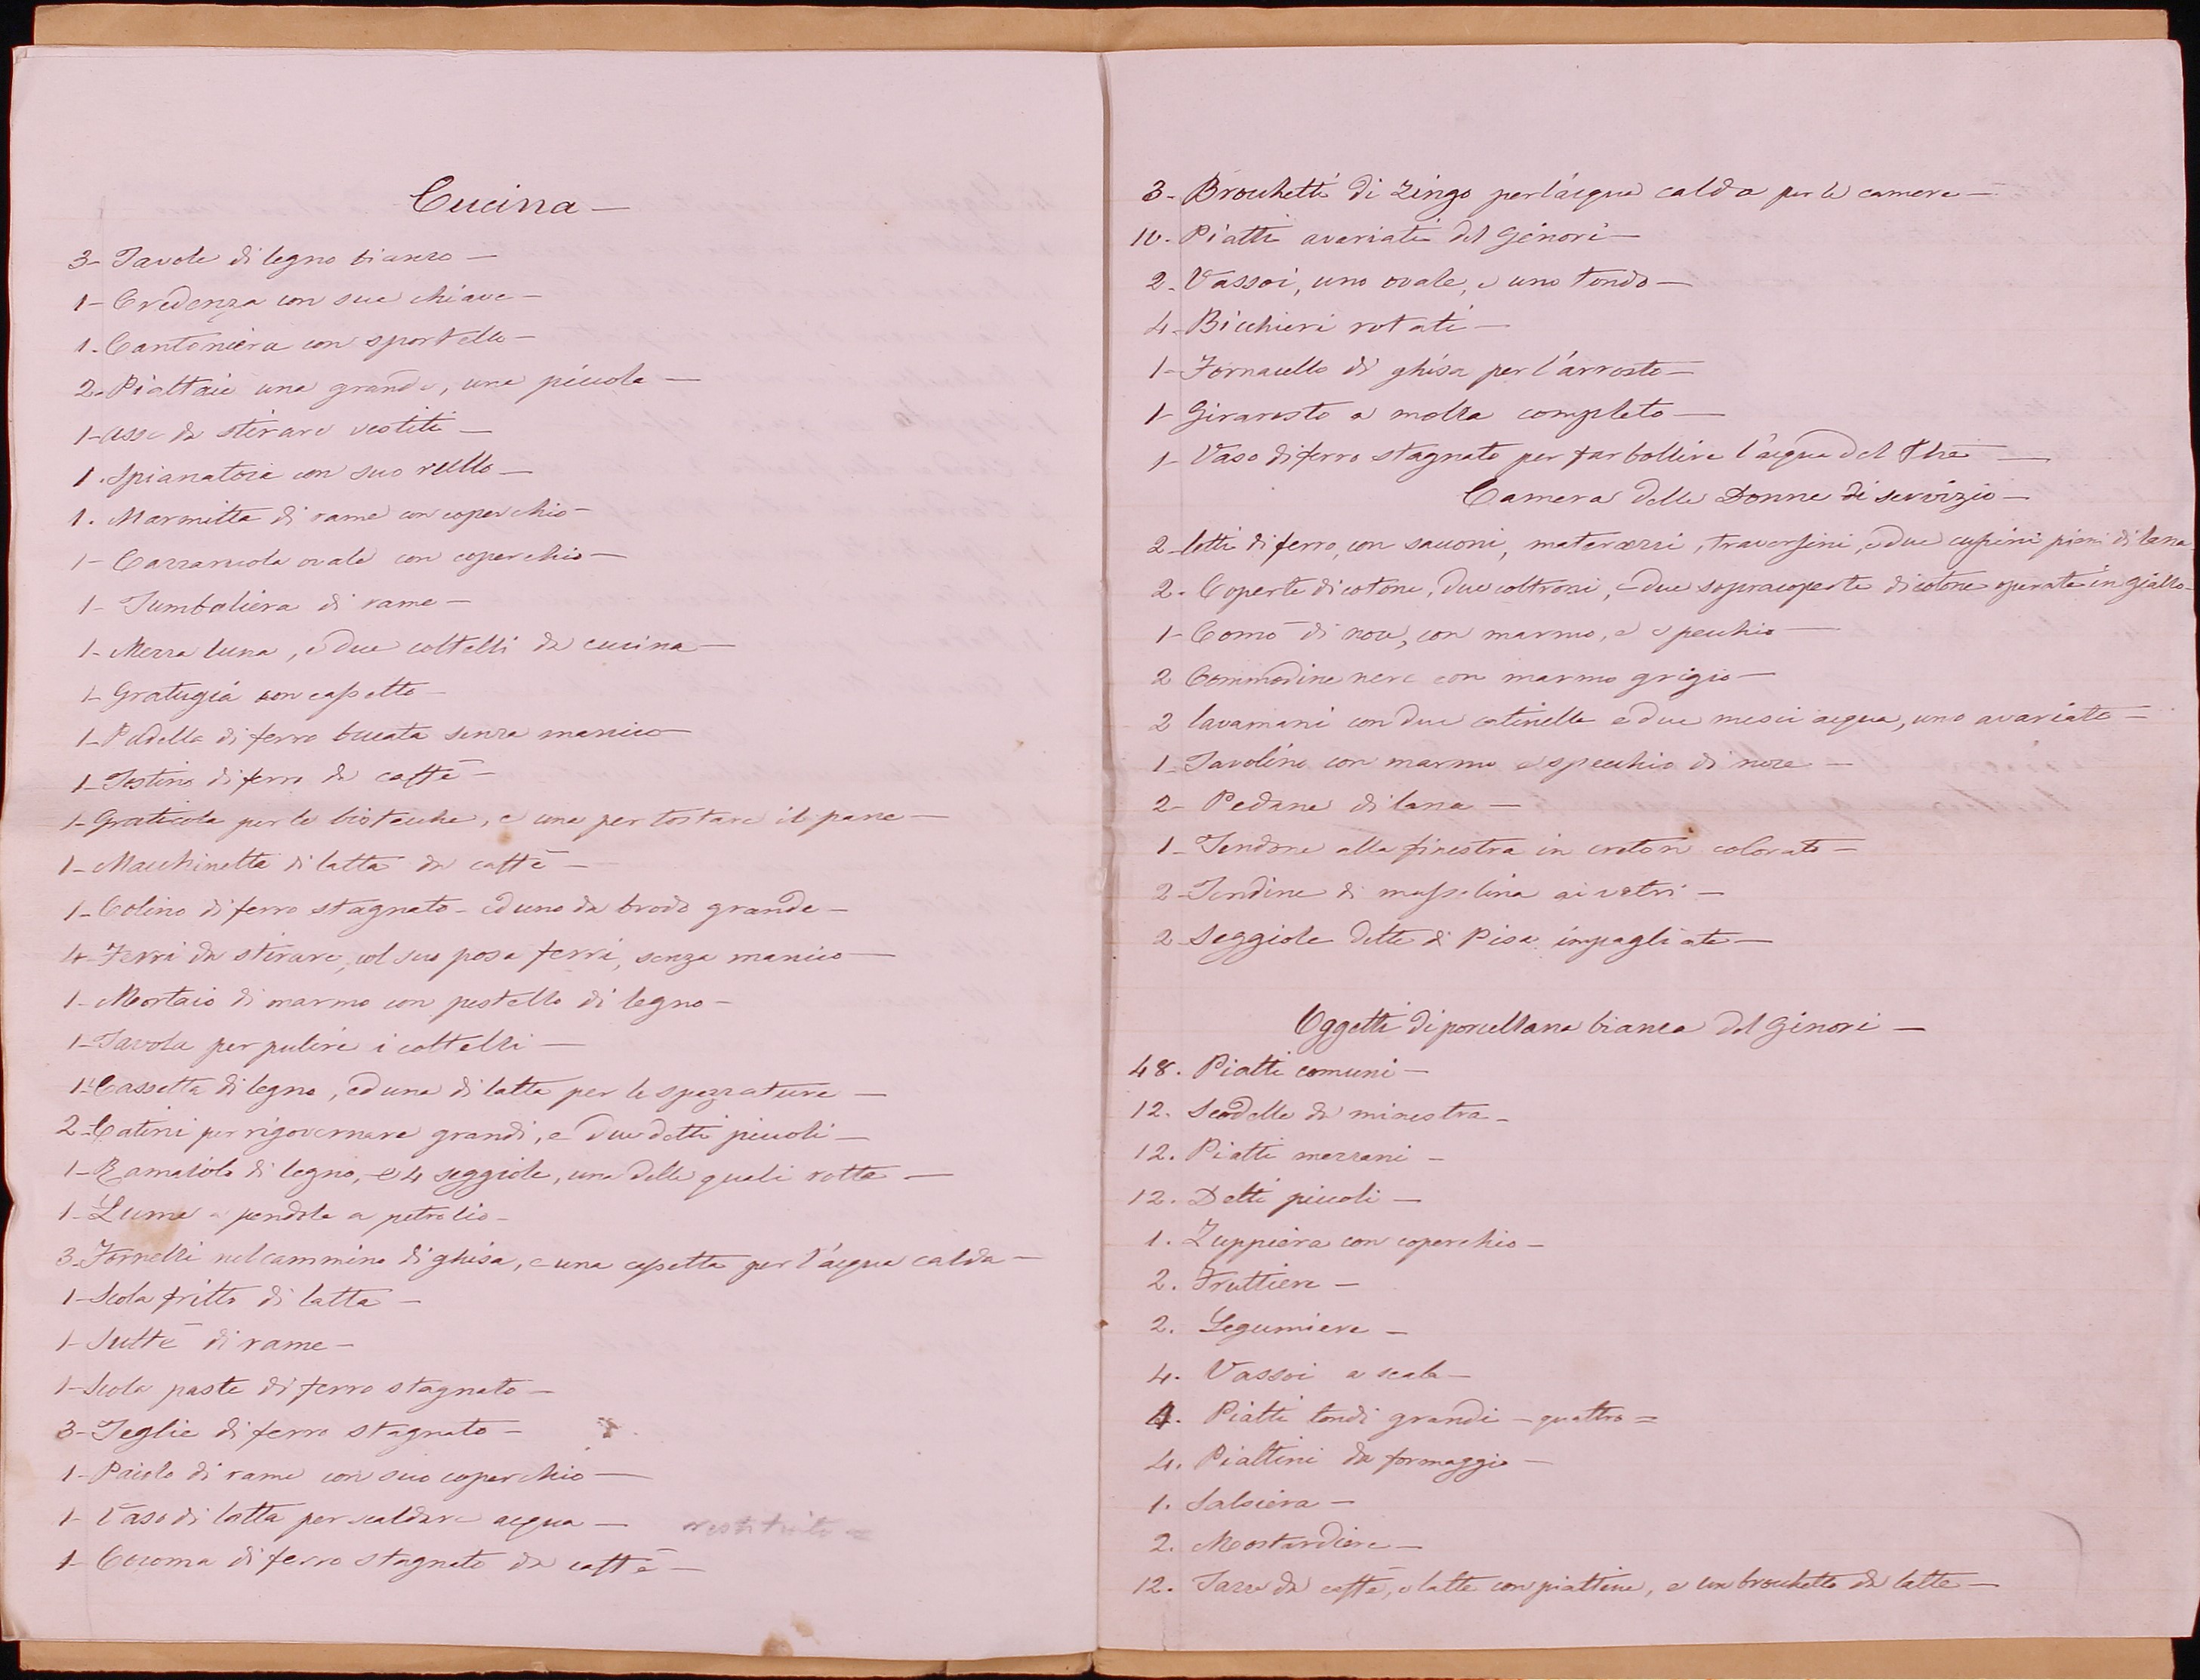 Cucina —
3- Tavole di legno bianco —
1- Credenza con sua chiave —
1- Cantoniera con sportello —
2- Piattaie una grande, una piccola —
1- Asse da stirare vestiti —
1. Spianatoia con suo rullo —
1. Marmitta di rame con coperchio —
1- Cazzaruola ovale con coperchio —
1- Tumbaliera di rame —
1- Mezza luna, e due coltelli da cucina —
1- Gratugia con cassetto —
1- Padella di ferro bucata senza manico —
1- Tostino di ferro da caffè —
1- Graticola per le bistecche, e una per tostare il pane —
1- Macchinetta di latta da caffè —
1- Colino di ferro stagnato - ed uno da brodo grande —
4- Ferri da stirare, col suo posa ferri, senza manico —
1- Mortaio di marmo con pestello di legno —
1- Tavola per pulire i coltelli —
1- Cassetta di legno, ed una di latta per le spazzature —
2- Catini per rigovernare grandi, e due detti piccoli —
1- Ramaiolo di legno, e 4 seggiole, una delle quali rotta —
1- Lume a pendola a petrolio —
3- Fornelli nel cammino di ghisa, e una cassetta per l'acqua calda —
1- Scola fritto di latta —
1- Sutté di rame —
1- Scola paste di ferro stagnato —
3- Teglie di ferro stagnato —
1- Paiolo di rame con suo coperchio —
1- Vaso di latta per scaldare acqua — restituito =
1- Cocoma di ferro stagnato da caffè —
3- Brocchetti di Zingo per l'acqua calda per le camere —
10- Piatti avariati del Ginori —
2- Vassoi, uno ovale, e uno tondo —
4- Bicchieri rotati —
1- Fornacello di ghisa per l'arrosto —
1- Girarosto a molla completo —
1- Vaso di ferro stagnato per far bollire l'acqua del Thè —
Camera delle Donne di servizio —
2- letti di ferro, con sacconi, materazzi, traversini, e due cuscini pieni di lana
2- Coperte di cotone, due coltroni, e due sopracoperte di cotone operate in giallo —
1- Comò di noce, con marmo, e specchio —
2 Commodine nere con marmo grigio —
2 lavamani con due catinelle e due mesci acqua, uno avariato —
1- Tavolino con marmo e specchio di noce —
2- Pedane di lana —
1- Tendone alla finestra in creton colorato —
2- Tendine di musselina ai vetri —
2- Seggiole dette di Pisa impagliate —
Oggetti di porcellana bianca del Ginori —
48. Piatti comuni —
12. Scodelle da minestra —
12. Piatti mezzani —
12. Detti piccoli —
1. Zuppiera con coperchio —
2. Fruttiere —
2. Legumiere —
4. Vassoi a scala —
4. Piatti tondi grandi — quattro =
4. Piattini da formaggio —
1. Salsiera —
2. Mostardiere —
12. Tazze da caffè, e latte con piattine, e un brocchetto da latte —